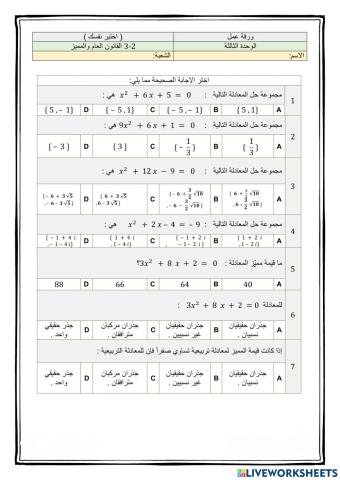 ورقة عمل ( اختبر نفسك )
الوحدة الثالثة 3-2 القانون العام والمميز
الاسم: الشعبة:
اختر الإجابة الصحيحة مما يلي:
1 مجموعة حل المعادلة التالية : x² + 6x + 5 = 0 هي :
A {5, 1} B {-5, -1} C {-5, 1} D {5, -1}
2 مجموعة حل المعادلة التالية : 9x² + 6x + 1 = 0 هي:
A {1/3} B {-1/3} C {3} D {-3}
3 مجموعة حل المعادلة التالية : x² + 12x - 9 = 0 هي :
A {6 + 3/2 √10, 6 - 3/2 √10} B {-6 + 3/2 √10, -6 - 3/2 √10} C {6 + 3√5, 6 - 3√5} D {-6 + 3√5, -6 - 3√5}
4 مجموعة حل المعادلة التالية : x² + 2x - 4 = -9 هي :
A {1 + 2i, 1 - 2i} B {-1 + 2i, -1 - 2i} C {1 + 4i, 1 - 4i} D {-1 + 4i, -1 - 4i}
5 ما قيمة مميّز المعادلة : 3x² + 8x + 2 = 0؟
A 40 B 64 C 66 D 88
6 للمعادلة 3x² + 8x + 2 = 0 :
A جذران حقيقيان نسبيان . B جذران حقيقيان غير نسبيين . C جذران مركبان مترافقان . D جذر حقيقي واحد .
7 إذا كانت قيمة المميز لمعادلة تربيعية تساوي صفراً فإن للمعادلة التربيعية :
A جذران حقيقيان نسبيان . B جذران حقيقيان غير نسبيين . C جذران مركبان مترافقان . D جذر حقيقي واحد .
LIVEWORKSHEETS